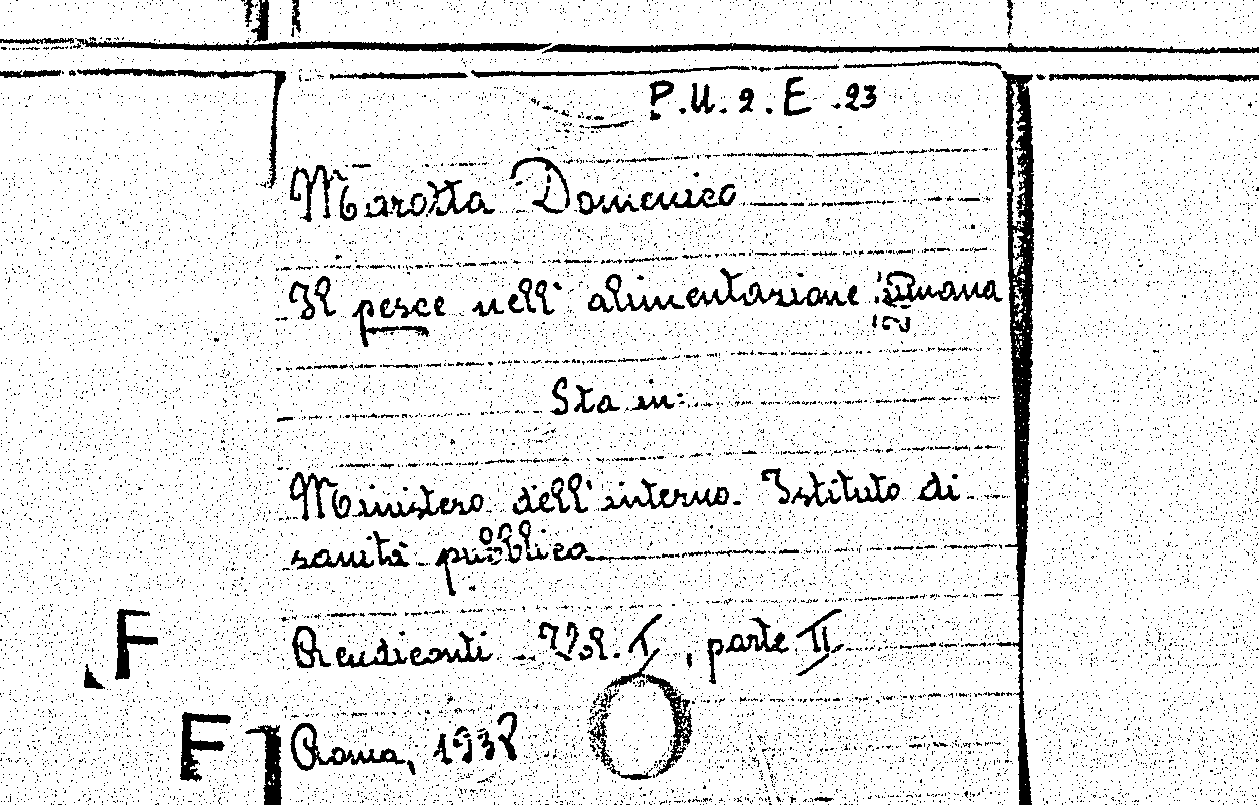 P.U. 2. E. 23
Marotta Domenico
Il pesce nell' alimentazione umana
Sta in:
Ministero dell' interno. Istituto di
sanità pubblica
Rendiconti Vol. I, parte II
F
F
Roma, 1938